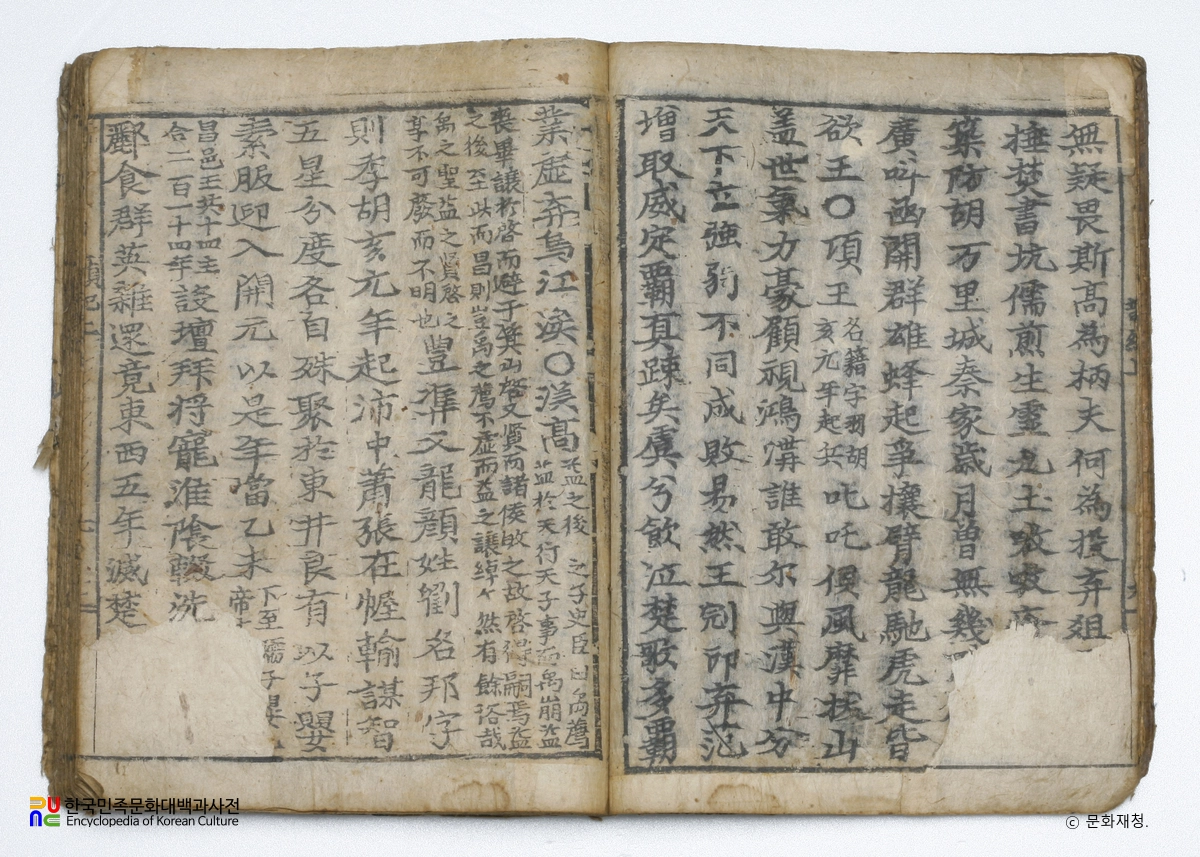 無疑畏斯高為柄夫何為投弃俎
焚書坑儒煎生靈
築防胡万里城秦家歲月曾無幾
廣呌函開群雄蜂起爭攘臂龍馳虎走皆
欲王〇項王名籍字羽胡亥元年起兵叱吒倐風靡拔山
盖世氣力豪顧視鴻溝誰敢尔與漢中分
天下立強弱不同成敗易然王刓印弃范
增取威定覇真踈矣虞兮飮泣楚歌多覇
業虛弃烏江涘〇漢高
喪畢讓於啓而避于箕山啓又賢而諸侯敀之故啓得嗣焉益
之後至此而昌則豈禹之薦不虛而益之讓綽々然有餘裕哉
禹之聖益之賢啓之
享不可廢而不明也豊準又龍顔姓劉名邦字
則季胡亥元年起沛中蕭張在幄輸謀智
五星分度各自殊聚於東井良有以子嬰
素服迎入關元以是年當乙未下至孺子
昌邑王共十四主
合二百一十四年設壇拜将寵淮隂輟洗
酈食群英雜還竟東西五年滅楚
한국민족문화대백과사전
Encyclopedia of Korean Culture
ⓒ 문화재청.